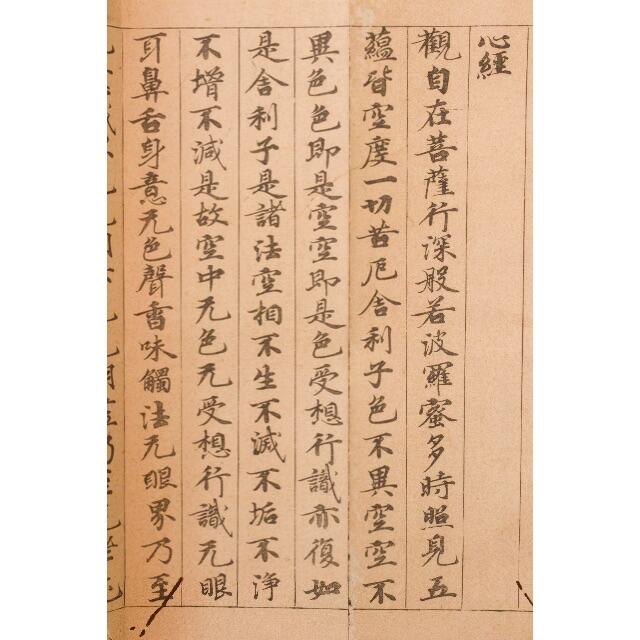 心經
觀自在菩薩行深般若波羅蜜多時照見五
蘊皆空度一切苦厄舍利子色不異空空不
異色色即是空空即是色受想行識亦復如
是舍利子是諸法空相不生不滅不垢不淨
不增不減是故空中无色无受想行識无眼
耳鼻舌身意无色聲香味觸法无眼界乃至